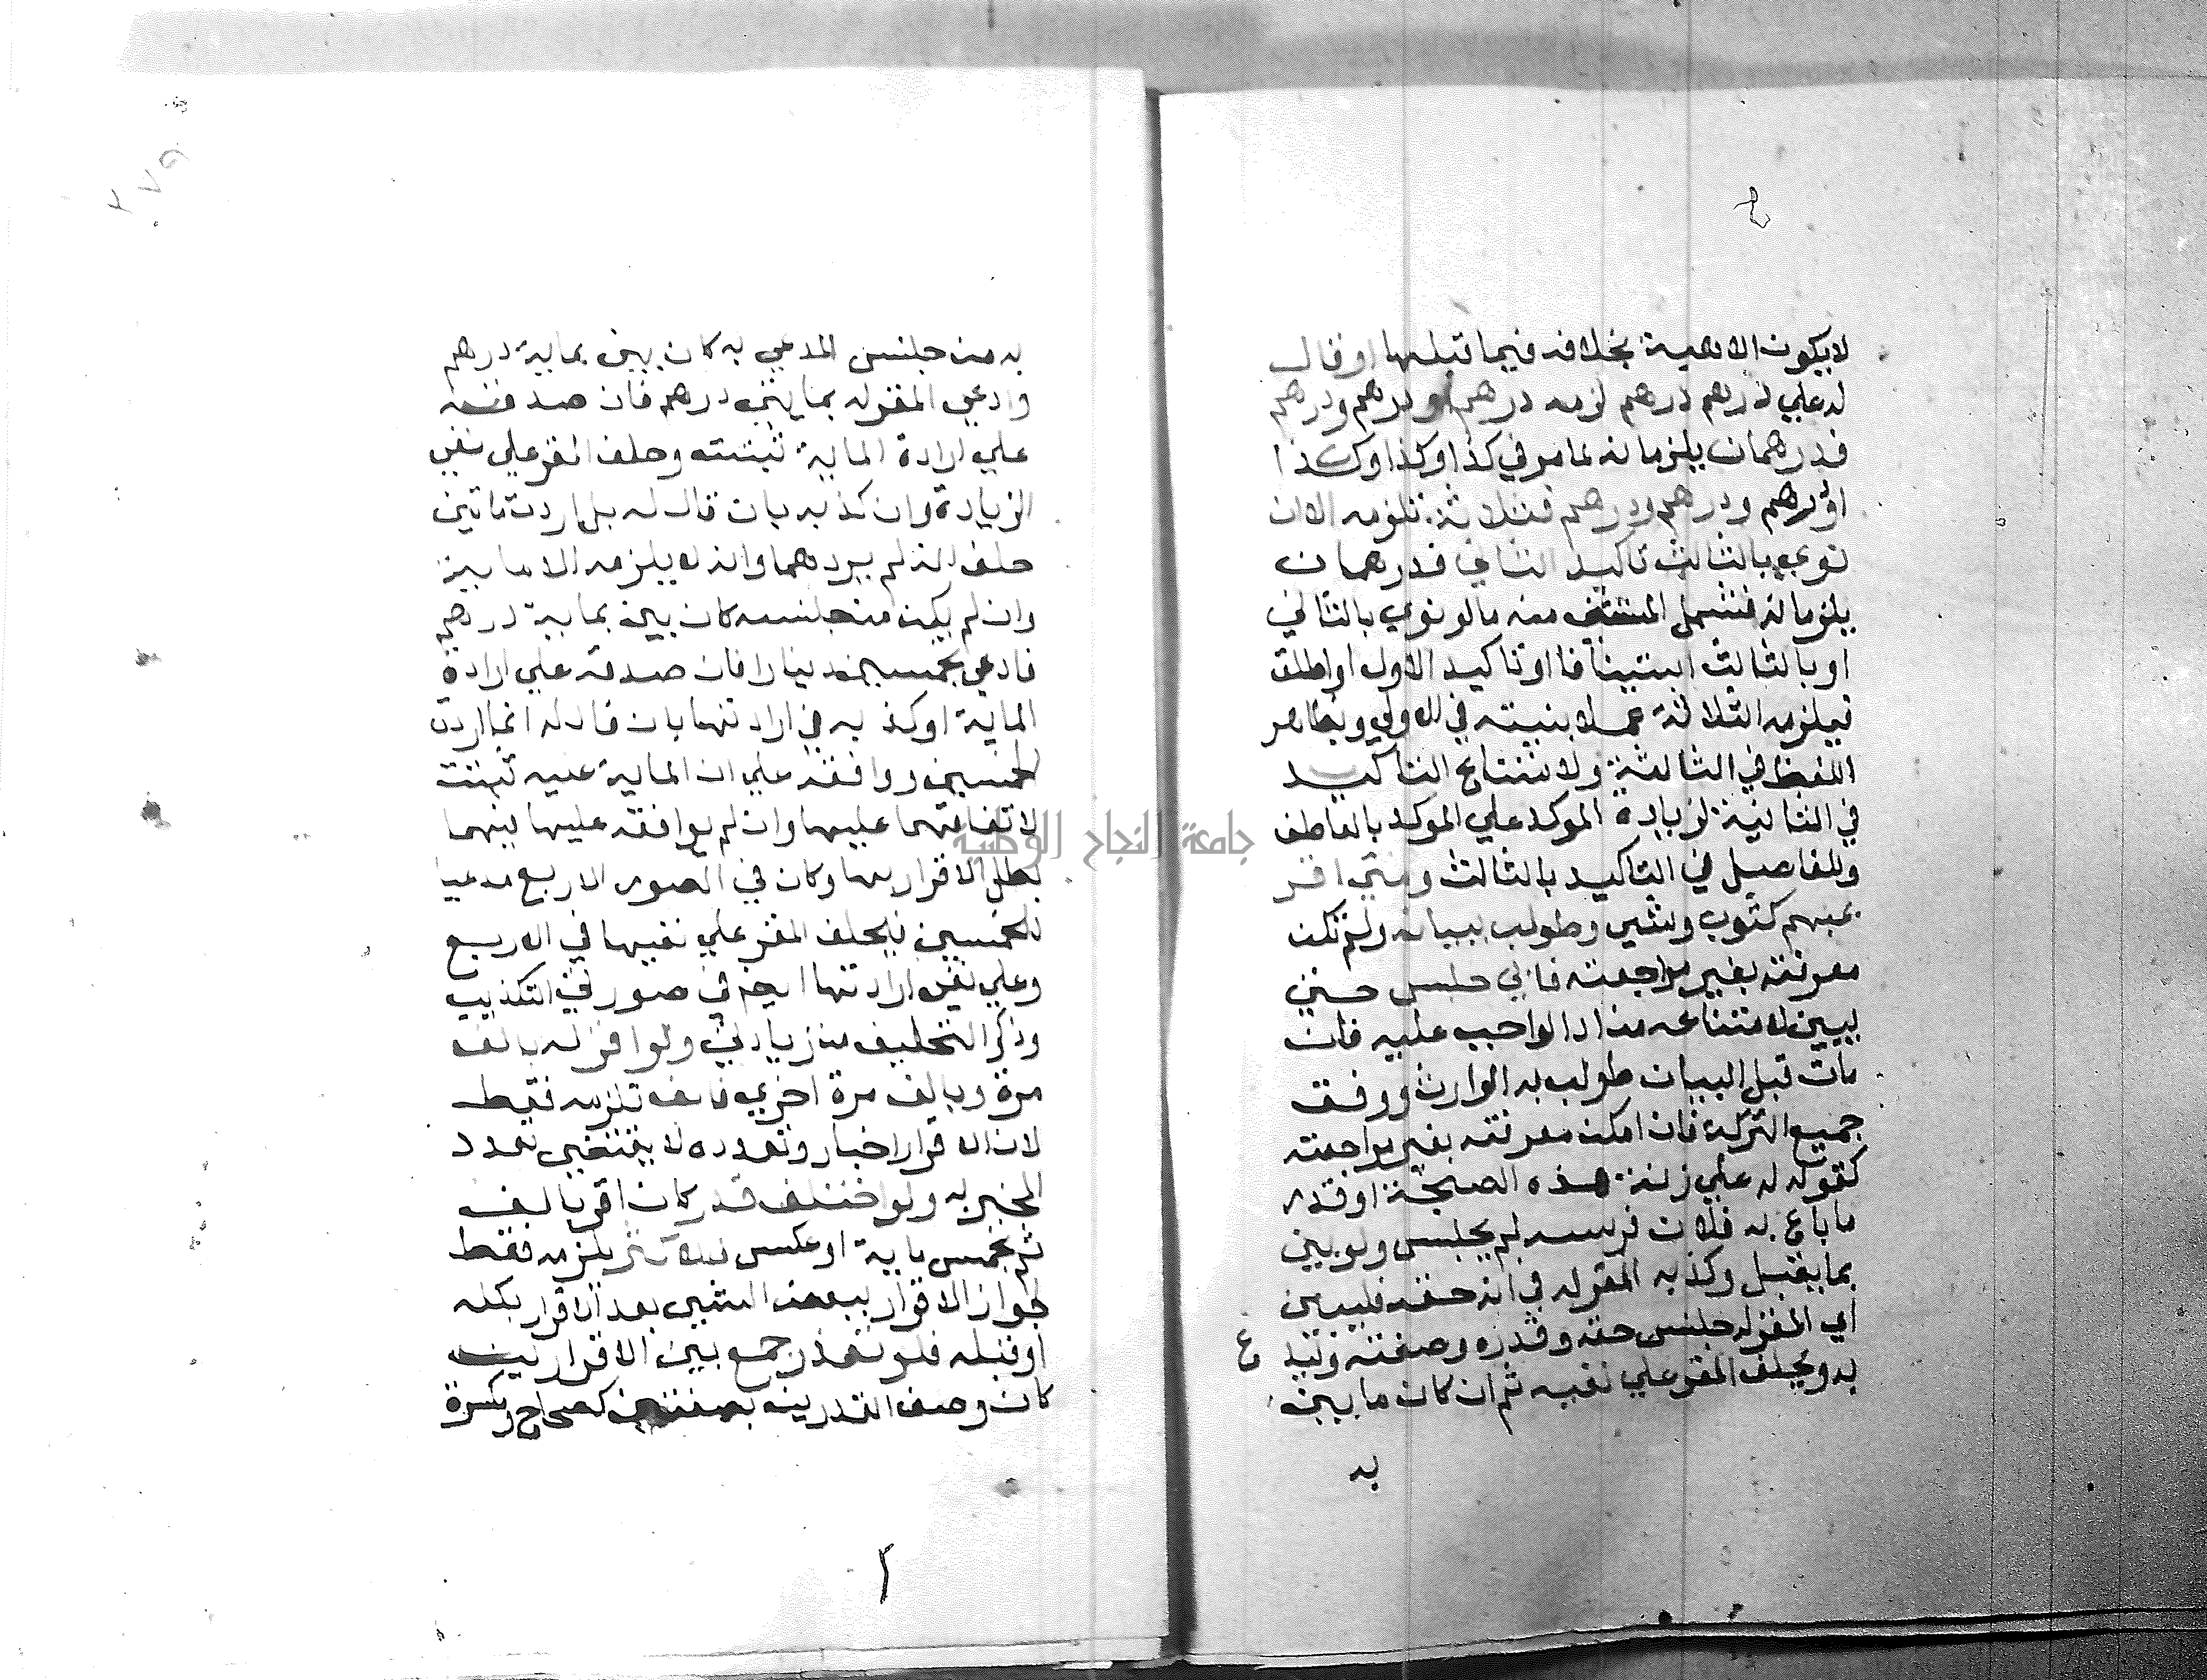 لا يكون الا معية بخلافه فيما قبلها او قال
له علي درهم درهم لزمه درهم او درهم ودرهم
فدرهمان يلزمانه لما مر في كذا وكذا وكذا
او درهم ودرهم ودرهم فثلاثة تلزمه الا ان
نوي بالثالث تاكيد الثاني فدرهمان
يلزمانه فشمل المستثنى منه مالو نوي بالثاني
او بالثالث استينافا او تاكيد الاول او اطلق
فيلزمه الثلاثة عملا بنيته في الاولي وبظاهر
اللفظ في الثالثة ولامتناع التاكيد
في الثانية لزيادة الموكد علي الموكد بالعاطف
وللفاصل في التاكيد بالثالث ومتي اقر
بمبهم كثوب وشي وطولب ببيانه ولم تكن
معرفته بغير مراجعته فابي حبس حتي
يبين لامتناعه من ادا الواجب عليه فان
مات قبل البيان طولب به الوارث ووقف
جميع التركة فان امكن معرفته بغير مراجعته
كقوله له علي زنة هذه الصنجة او قدر
ما باع به فلان فرسه لم يحبس ولو بين
بما يقبل وكذبه المقر له في انه حقه فليبين
اي المقر له جنس حقه وقدره وصفته وليد ع
به ويحلف المقر علي نفيه ثم ان كان ما بينه
به
به من جنس المدعي به كان بين بماية درهم
وادعي المقر له بمايتي درهم فان صدقه
علي ارادة الماية ثبتت وحلف المقر علي نفي
الزيادة وان كذبه بان قال له بل اردت ماتين
حلف انه لم يردهما وانه لا يلزمه الا ماية
وان لم يكن من جنسه كان بين بماية درهم
فادعي بخمسين دينارا فان صدقه علي ارادة
الماية او كذبه في ارادتها بان قال له انما اردت
الخمسين ووافقه علي ان الماية عليه ثبتت
لاتفاقهما عليها وان لم يوافقه عليها فيهما
بطل الاقرار بها وكان في الصور الاربع مدعيا
للخمسين فيحلف المقر علي نفيها في الاربع
وعلي نفي ارادتها ايضا في صورتي التكذيب
وذكر التحليف من زيادتي ولو اقر له بالف
مرة وبالف مرة اخري فالف تلزمه فقط
لان الاقرار اخبار وتعدده لا يقتضي تعدد
المخبر به ولو اختلف قدر كان اقر بالف
ثم بخمس ماية او عكس فالاكثر يلزمه فقط
لجواز الاقرار ببعض الشي بعد الاقرار بكله
او قبله فلو تعذر جمع بين الاقرارين
كان وصف القدرين بصفتين كصحاح ومكسرة
جامعة النجاح الوطنية